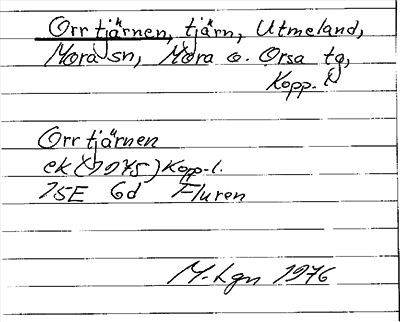 Orrtjärnen, tjärn, Utmeland,
Mora sn, Mora o. Orsa tg,
Kopp. l
Orrtjärnen
ek (1975) Kopp. l.
15E 6d Fluren
M-Lgn 1976